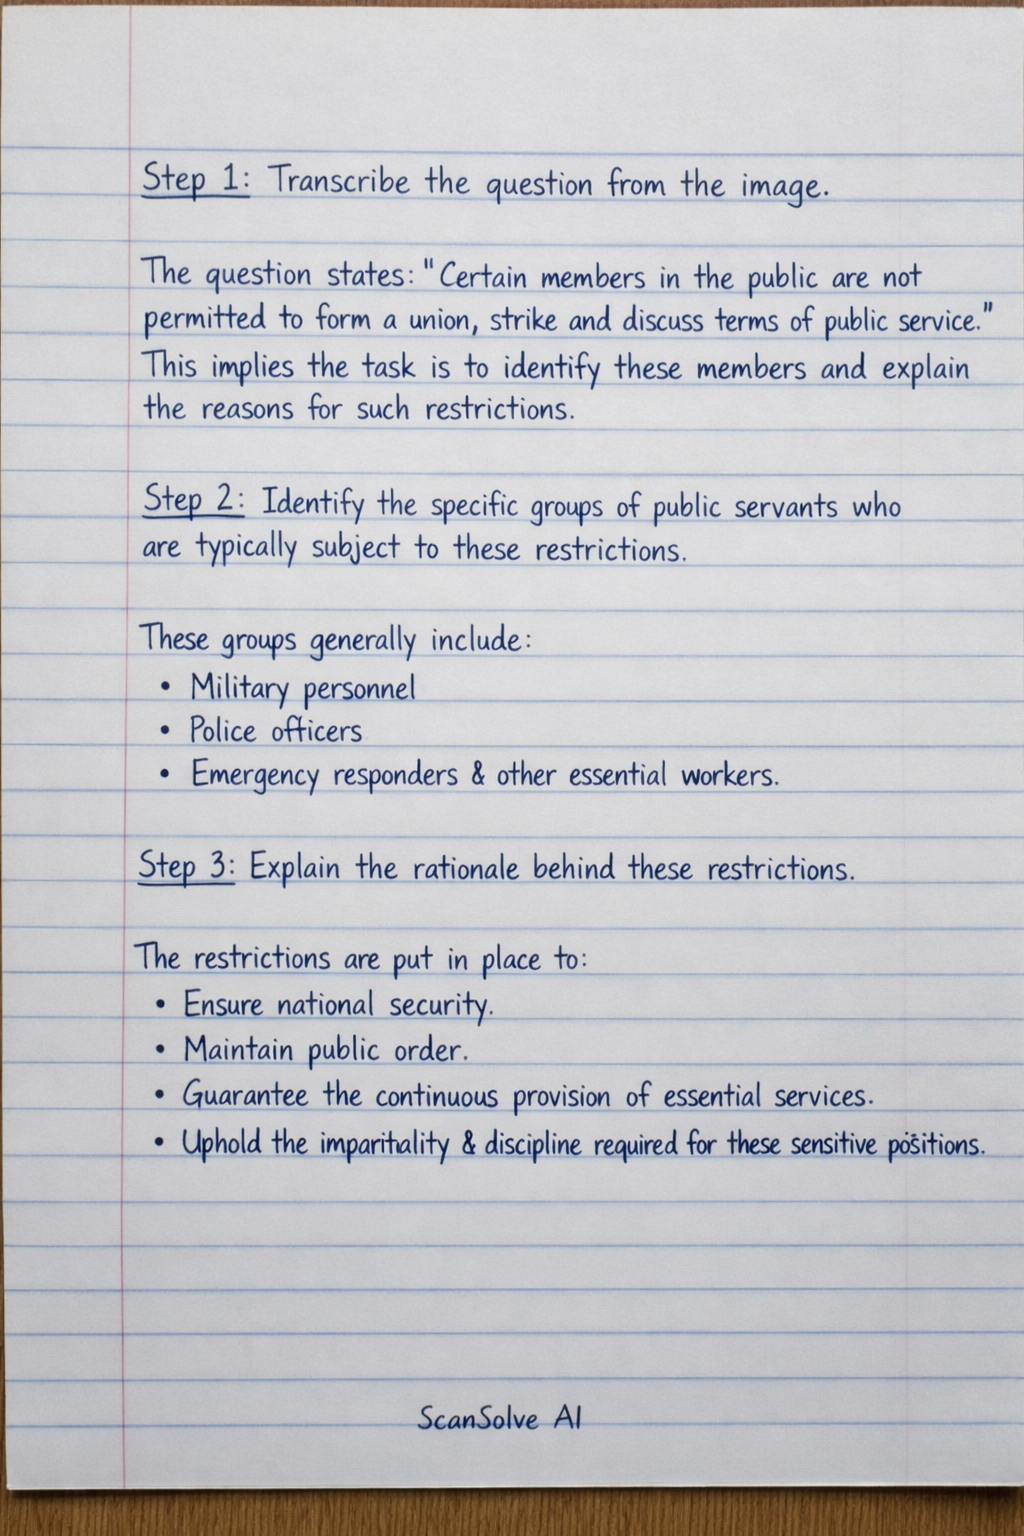 Step 1: Transcribe the question from the image.
The question states: "Certain members in the public are not
permitted to form a union, strike and discuss terms of public service."
This implies the task is to identify these members and explain
the reasons for such restrictions.
Step 2: Identify the specific groups of public servants who
are typically subject to these restrictions.
These groups generally include:
• Military personnel
• Police officers
• Emergency responders & other essential workers.
Step 3: Explain the rationale behind these restrictions.
The restrictions are put in place to:
• Ensure national security.
• Maintain public order.
• Guarantee the continuous provision of essential services.
• Uphold the imparitality & discipline required for these sensitive positions.
ScanSolve AI